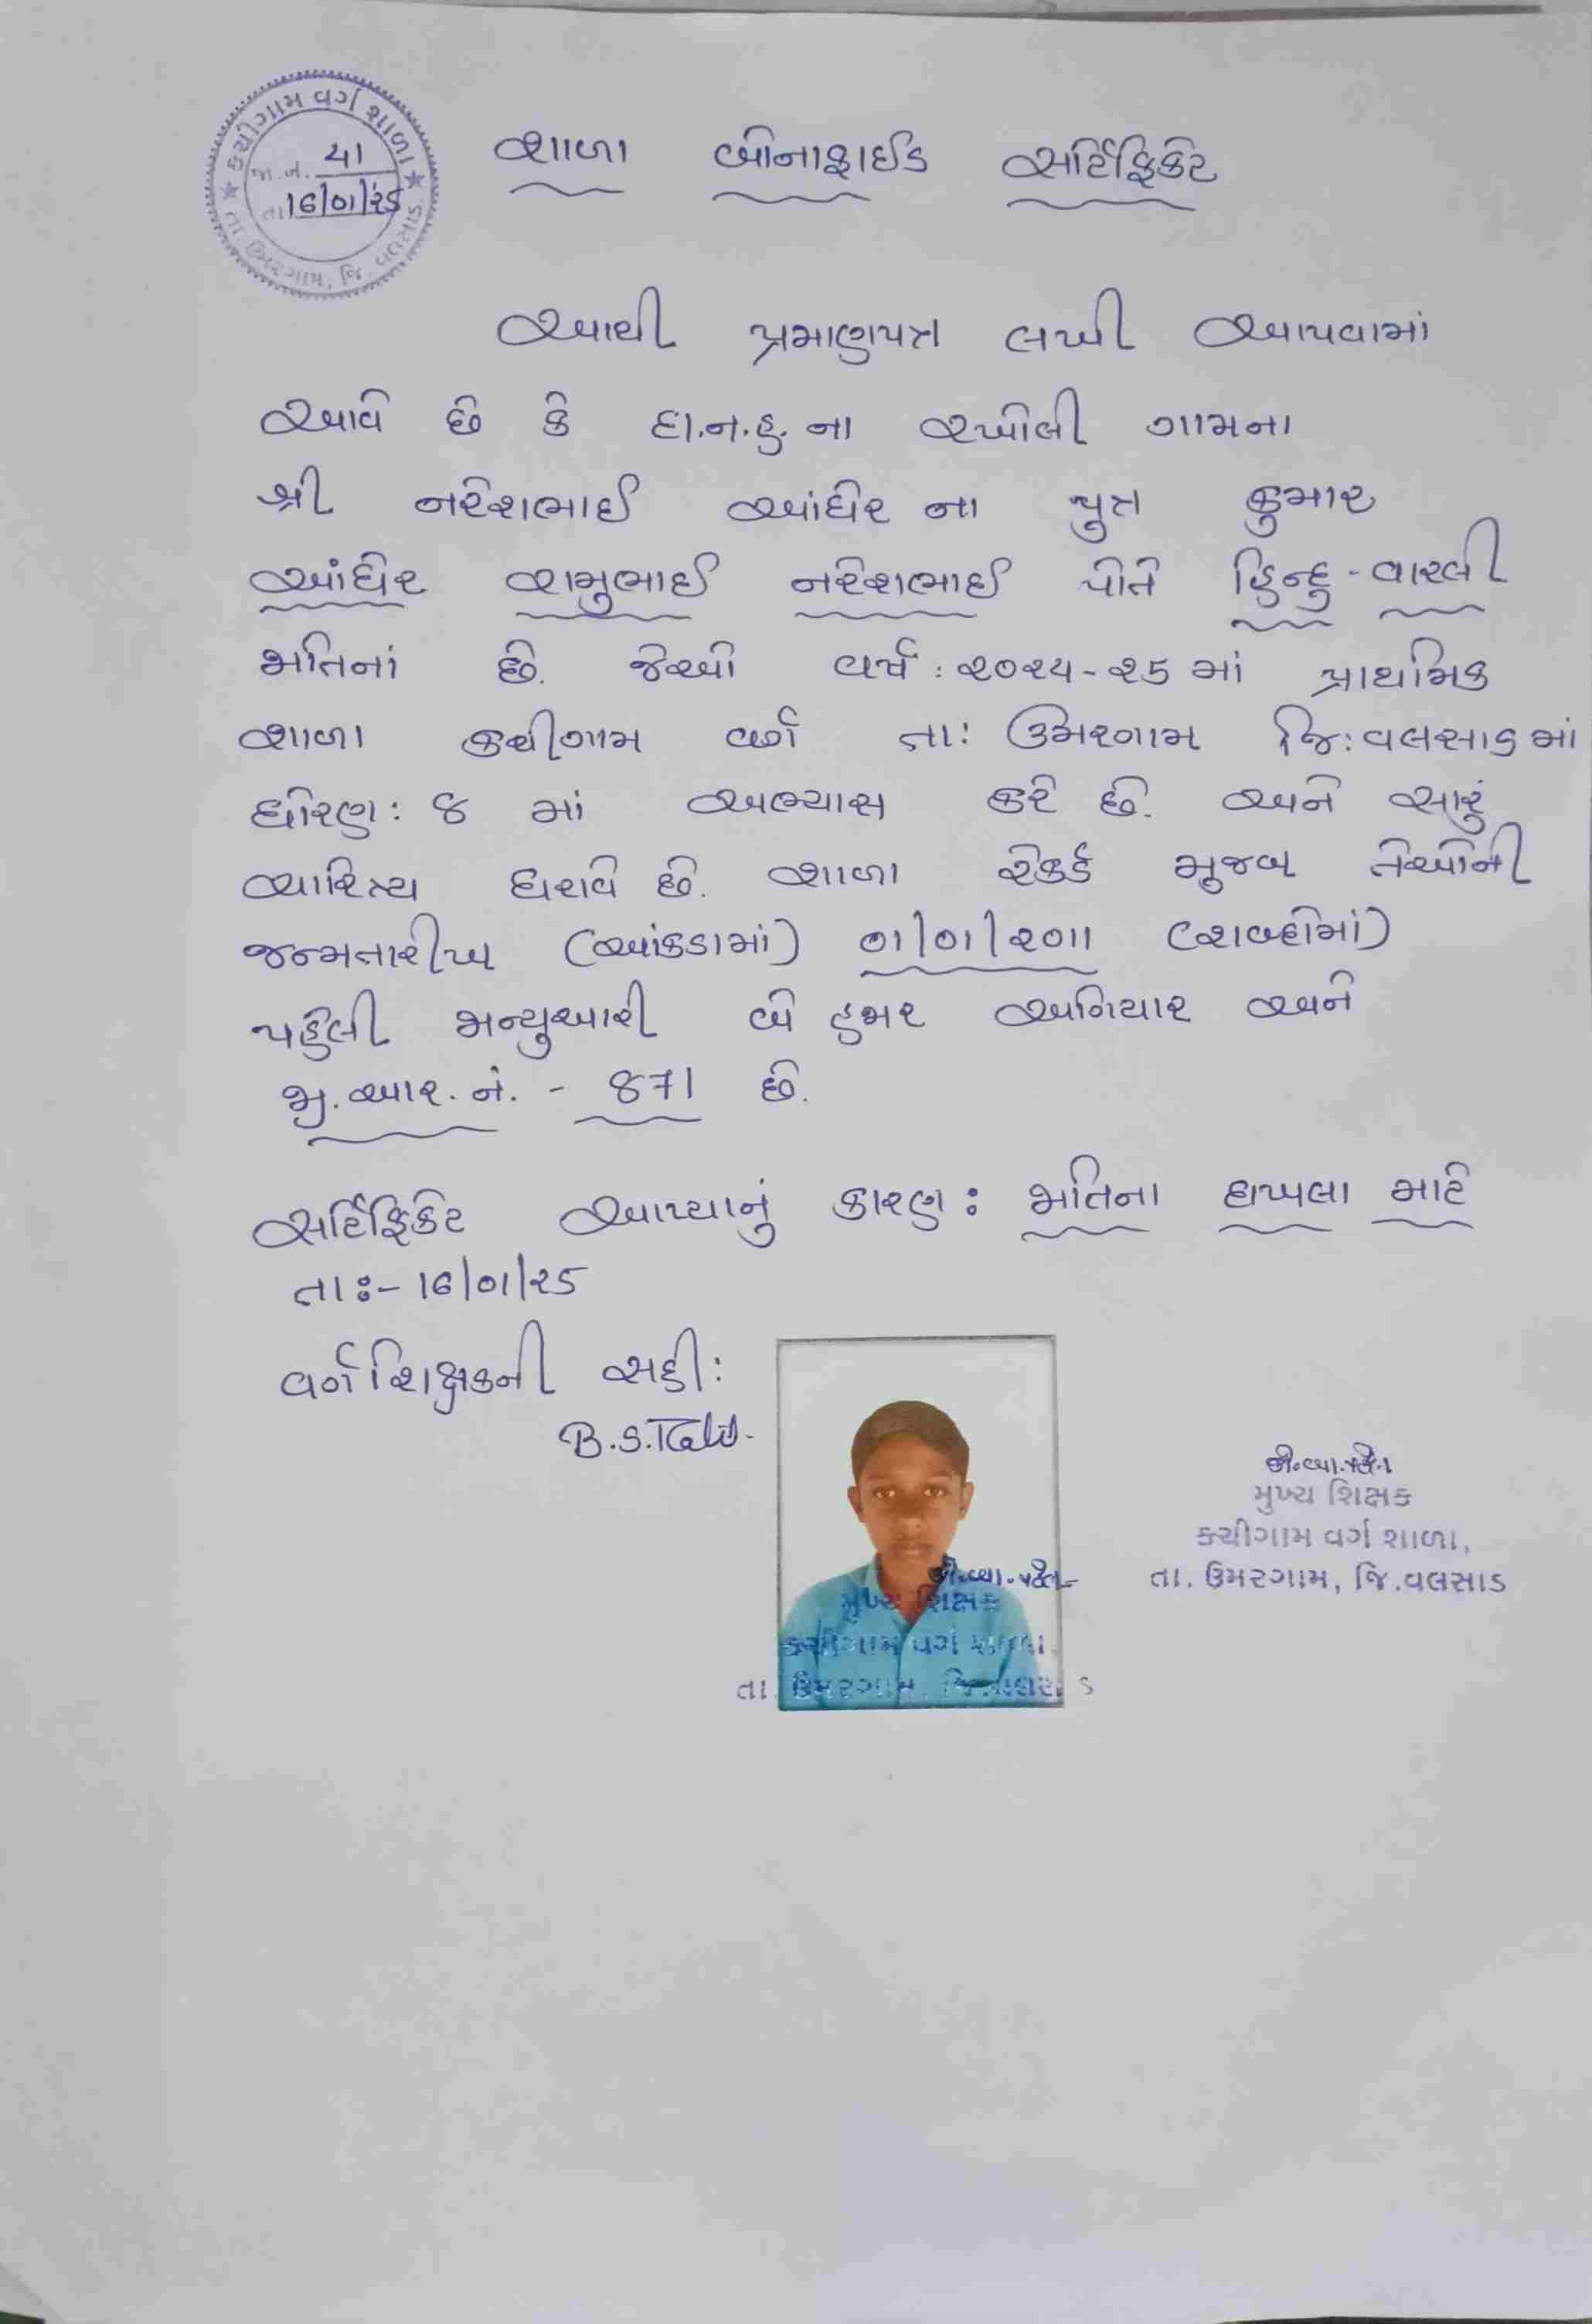 કચીગામ વર્ગ શાળા
જા.નં. ૨૧
તા. ૧૬/૦૧/૨૬
તા. ઉમરગામ, જિ. વલસાડ.
શાળા બોનાફાઈડ સર્ટિફિકેટ
આથી પ્રમાણપત્ર લખી આપવામાં
આવે છે કે દા.ન.હ. ના રખોલી ગામના
શ્રી નરેશભાઈ આંધેર ના પુત્ર કુમાર
આંધેર રામુભાઈ નરેશભાઈ પોતે હિન્દુ - વારલી
જાતિનાં છે. જેઓ વર્ષ : ૨૦૨૫-૨૬ માં પ્રાથમિક
શાળા કચીગામ વર્ગ તા: ઉમરગામ જિ: વલસાડ માં
ધોરણ: ૪ માં અભ્યાસ કરે છે. અને સારું
ચારિત્ર્ય ધરાવે છે. શાળા રેકર્ડ મુજબ તેઓની
જન્મતારીખ (આંકડામાં) ૦૧/૦૧/૨૦૧૧ (શબ્દોમાં)
પહેલી જાન્યુઆરી બે હજાર અગિયાર અને
જી. આર. નં. - ૪૭૧ છે.
સર્ટિફિકેટ આપ્યાનું કારણ : જાતિના દાખલા માટે
તા :- ૧૬/૦૧/૨૬
વર્ગ શિક્ષકની સહી :
B.S.
મુખ્ય શિક્ષક
કચીગામ વર્ગ શાળા,
તા. ઉમરગામ, જિ.વલસાડ
મુખ્ય શિક્ષક
કચીગામ વર્ગ શાળા,
તા. ઉમરગામ, જિ.વલસાડ